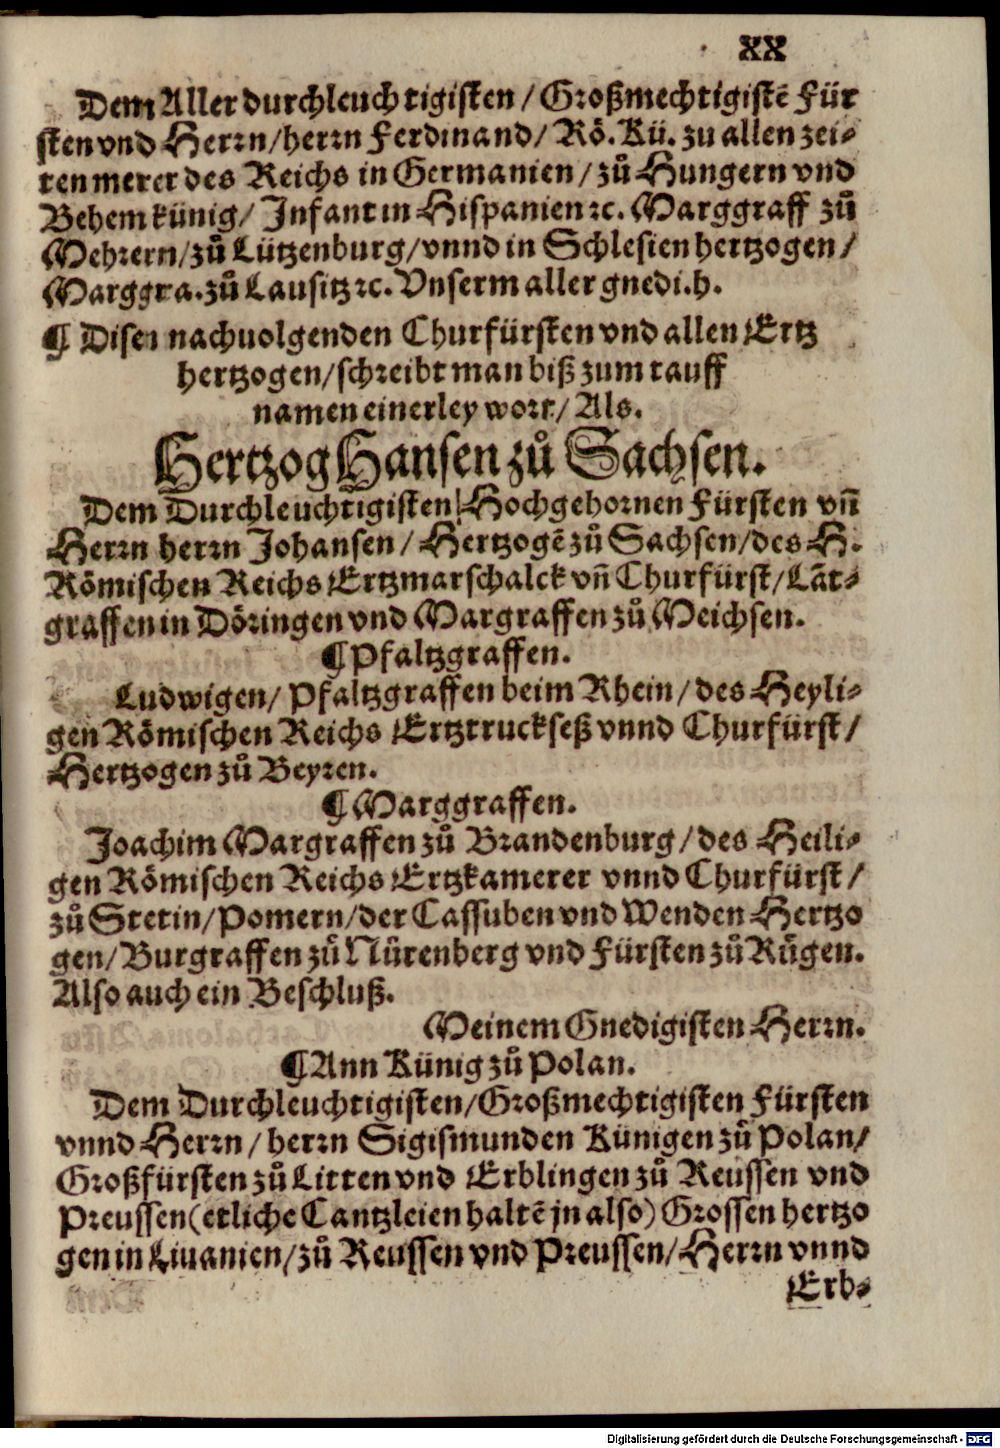 XX
Dem Aller durchleuchtigisten / Großmechtigistē Für
sten vnd Herrn/herrn Ferdinand/ Rö. Kü. zu allen zei⸗
ten merer des Reichs in Germanien / zů Hungern vnd
Behem künig/ Infant in Hispanien ꝛc. Marggraff zů
Mehrern/zů Lützenburg/vnnd in Schlesien hertzogen /
Marggra. zů Lausitz ꝛc. Vnserm aller gnedi. h.
¶ Disen nachuolgenden Churfürsten vnd allen Ertz
hertzogen/schreibt man biß zum tauff
namen einerley wort/ Als.
Hertzog Hansen zů Sachsen.
Dem Durchleuchtigisten/Hochgebornen Fürsten vñ
Herrn herrn Johansen / Hertzogē zů Sachsen/des H.
Römischen Reichs Ertzmarschalck vñ Churfürst/Lāt⸗
graffen in Döringen vnd Margraffen zů Meichsen.
¶ Pfaltzgraffen.
Ludwigen/ Pfaltzgraffen beim Rhein/des Heyli⸗
gen Römischen Reichs Ertztruckseß vnnd Churfürst/
Hertzogen zů Beyren.
¶ Marggraffen.
Joachim Margraffen zů Brandenburg/des Heili⸗
gen Römischen Reichs Ertzkamerer vnnd Churfürst/
zů Stetin/Pomern/der Cassuben vnd Wenden Hertzo
gen/Burgraffen zů Nürenberg vnd Fürsten zů Rügen.
Also auch ein Beschluß.
Meinem Gnedigisten Herrn.
¶ Ann Künig zů Polan.
Dem Durchleuchtigisten/Großmechtigisten Fürsten
vnnd Herrn/ herrn Sigismunden Künigen zů Polan/
Großfürsten zů Litten vnd Erblingen zů Reussen vnd
Preussen (etliche Cantzleien haltē jn also) Grossen hertzo
gen in Liuanien/zů Reussen vnd Preussen/Herrn vnnd
Erb⸗
Digitalisierung gefördert durch die Deutsche Forschungsgemeinschaft - DFG